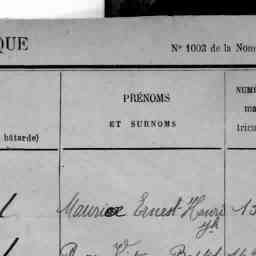 QUE
Nº 1003 de la Nom
PRÉNOMS
ET SURNOMS
NUMÉ
ma
tricu
bâtarde)
Maurice Ernest Henri 13